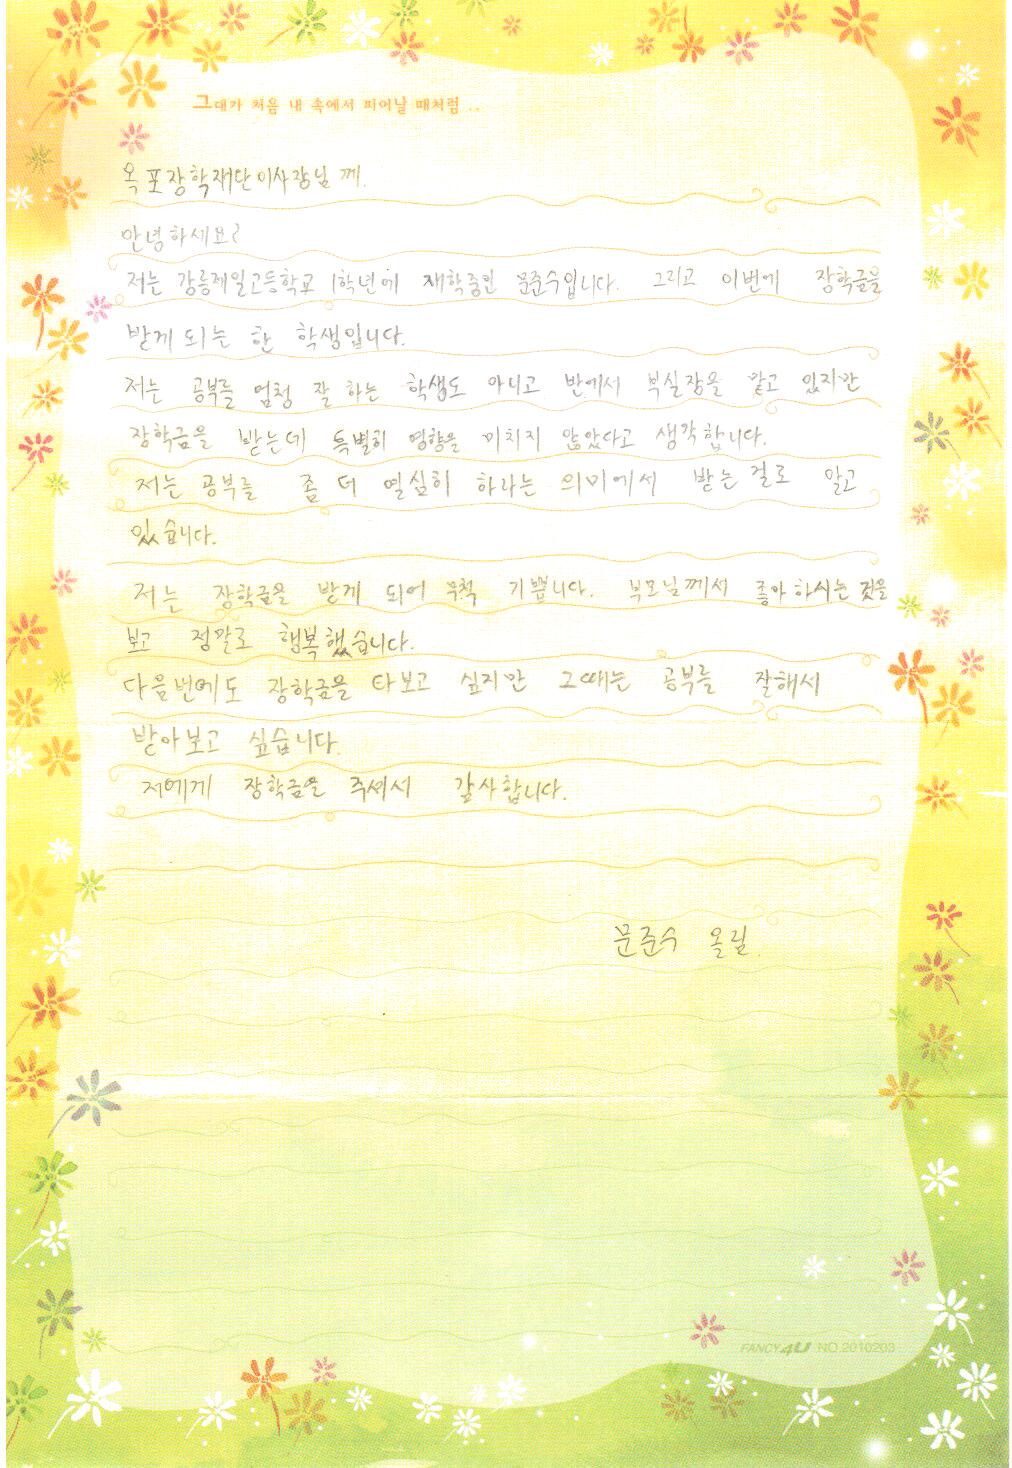 그대가 처음 내 속에서 피어날 때처럼 ..
옥포장학재단이사장님 께.
안녕하세요?
저는 강릉제일고등학교 1학년에 재학중인 문준수입니다. 그리고 이번에 장학금을
받게 되는 한 학생입니다.
저는 공부를 엄청 잘 하는 학생도 아니고 반에서 부실장을 맡고 있지만
장학금을 받는데 특별히 영향을 미치지 않았다고 생각합니다.
저는 공부를 좀 더 열심히 하라는 의미에서 받는 걸로 알고
있습니다.
저는 장학금을 받게 되어 무척 기쁩니다. 부모님께서 좋아 하시는 것을
보고 정말로 행복했습니다.
다음번에도 장학금을 타보고 싶지만 그때는 공부를 잘해서
받아보고 싶습니다.
저에게 장학금을 주셔서 감사합니다.
문준수 올림.
FANCY4U NO.2010203